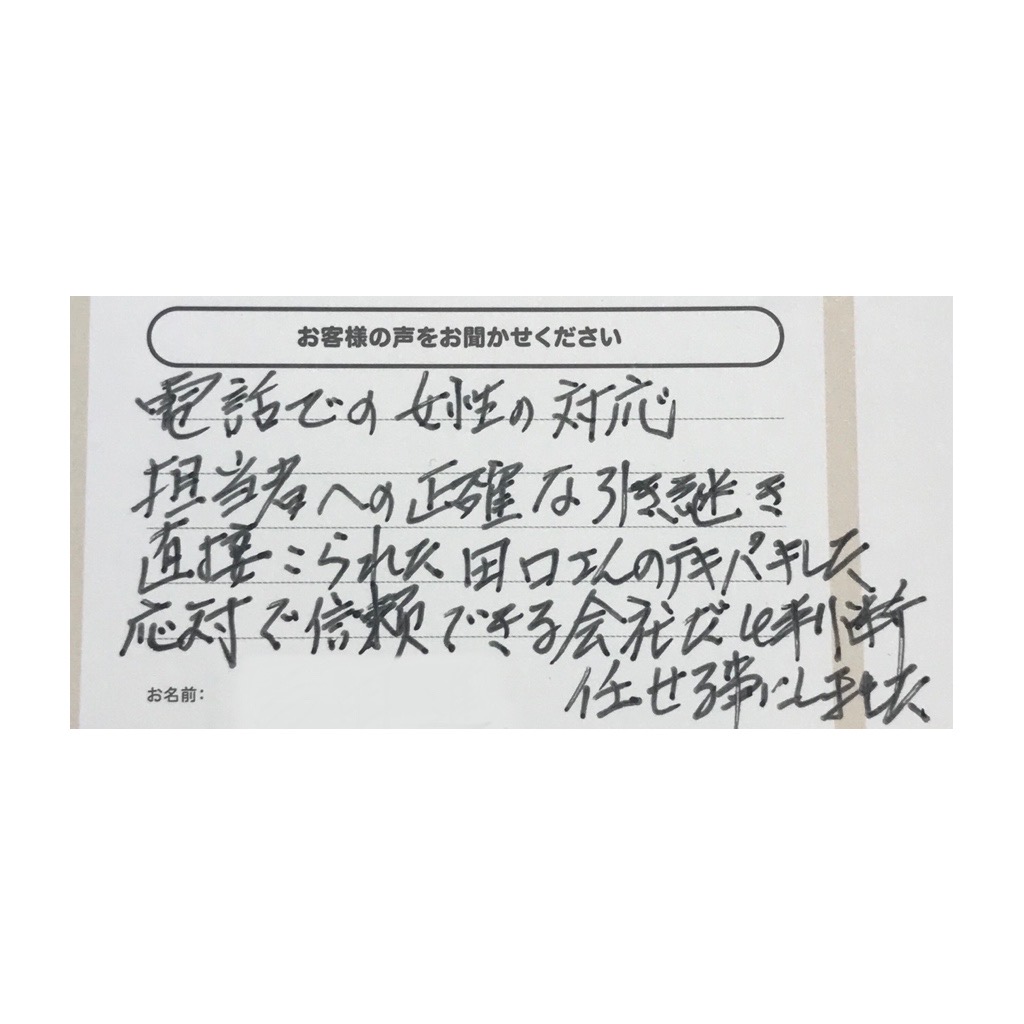 お客様の声をお聞かせください
電話での女性の対応
担当者への正確な引き継き
直接こられた田口さんのテキパキした
応対で信頼できる会社だと判断
任せる事にしました
お名前: